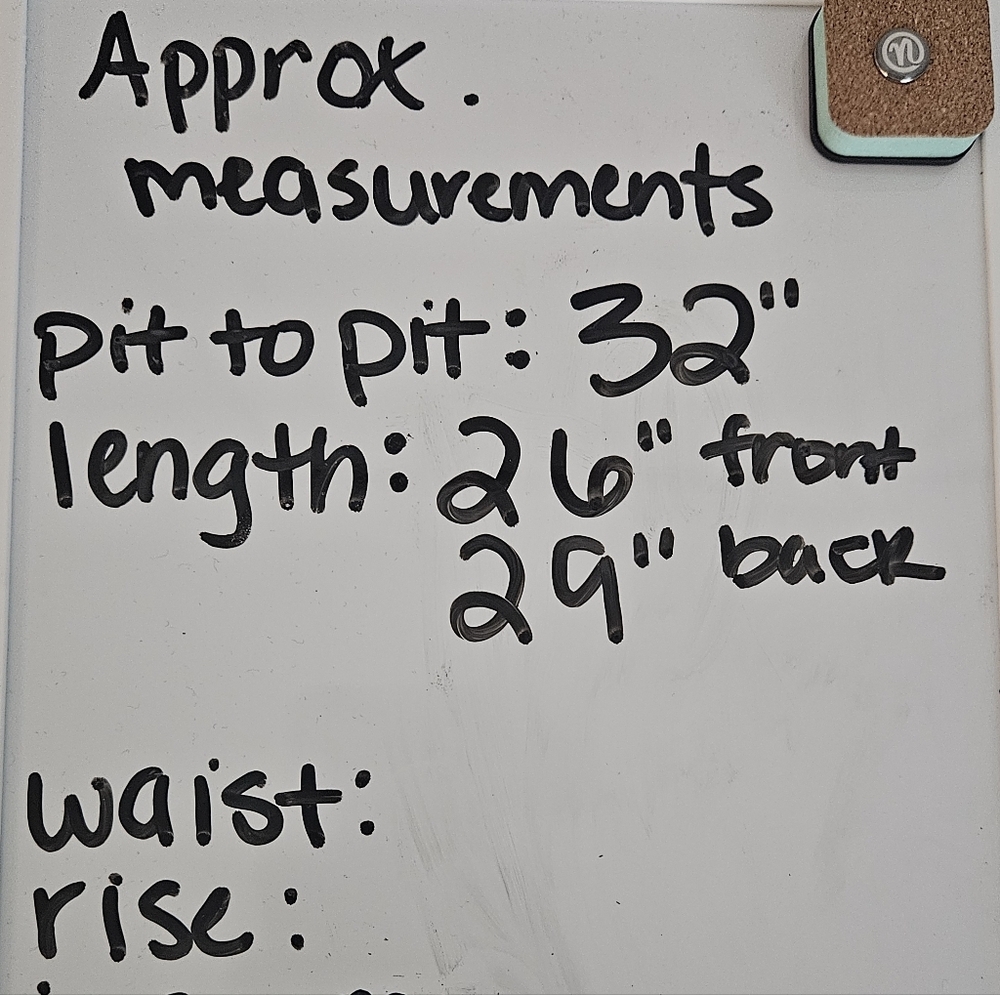 Approx.
measurements
pit to pit: 32"
length: 26" front
29" back
waist:
rise: